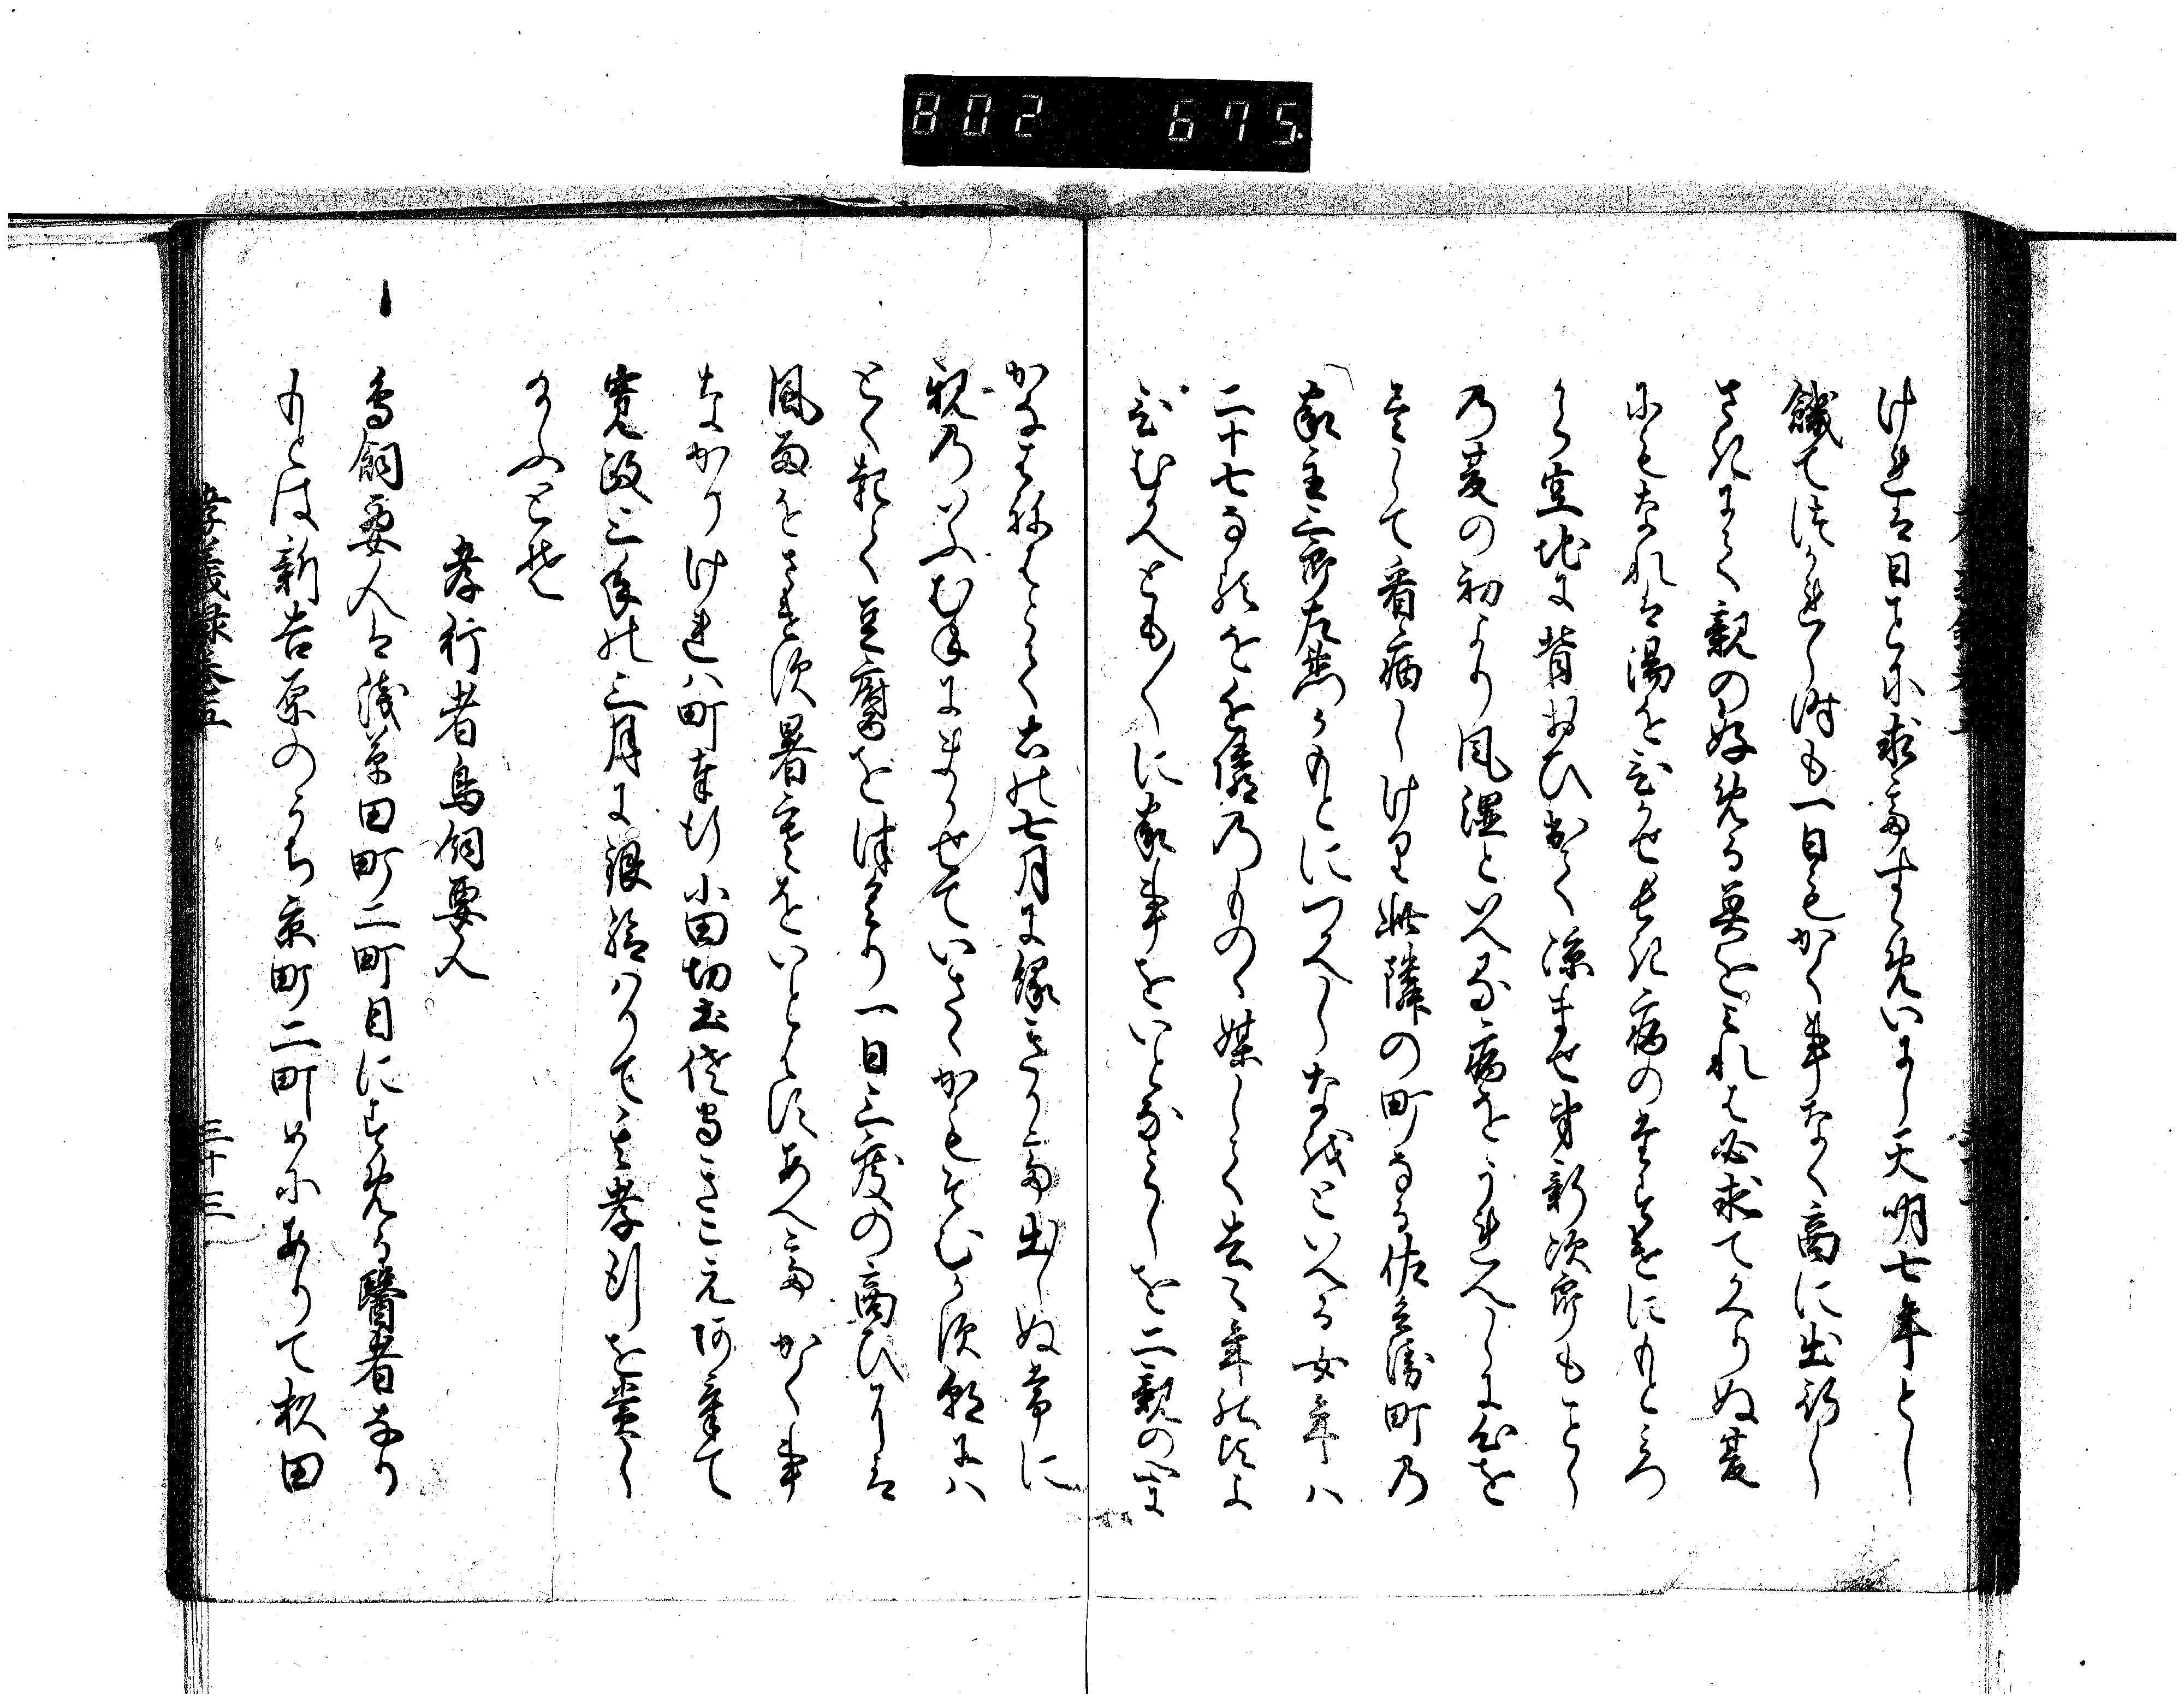 802 675
けれは日ことに求てすゝめいまし天明七年とし
饑てつかれし時も一日もかく事なく商に出行し
さきにて親の好める物をみれは必求てかへりぬ夏
にもなれは湯をひかせ長き病のたすけにもとみつ
から空地に背おひ出て涼ませ弟新次郎もことし
の夏の初より風湿といへる病をうれへしに心を
尽して看病しけり此隣の町なる佐兵衛町の
家主三郎左衛門かもとにつかへしなほといへる女年ハ
二十七なるをを隣のものゝ媒して去々年の冬よ
りむかへともともに家事をいとなみしを二親の心に
かなはねはとて去年の七月に縁きりて出しぬ常に
親のいふむねにまかせていさゝかもそむかす朝には
とく起て豆腐をつくり一日三度の商ひには
風雨をさけす暑寒をいとはすあへてかく事
なかりけれハ町奉行小田切土佐守きこえ阿けて
寛政三年の三月に銀給ハりて其孝行を賞し
たまふとそ
孝行者鳥飼要人
鳥飼要人は浅草田町二町目にすめる醫者なり
もとは新吉原のうち京町二町めにありて松田
孝義録巻五
三十三